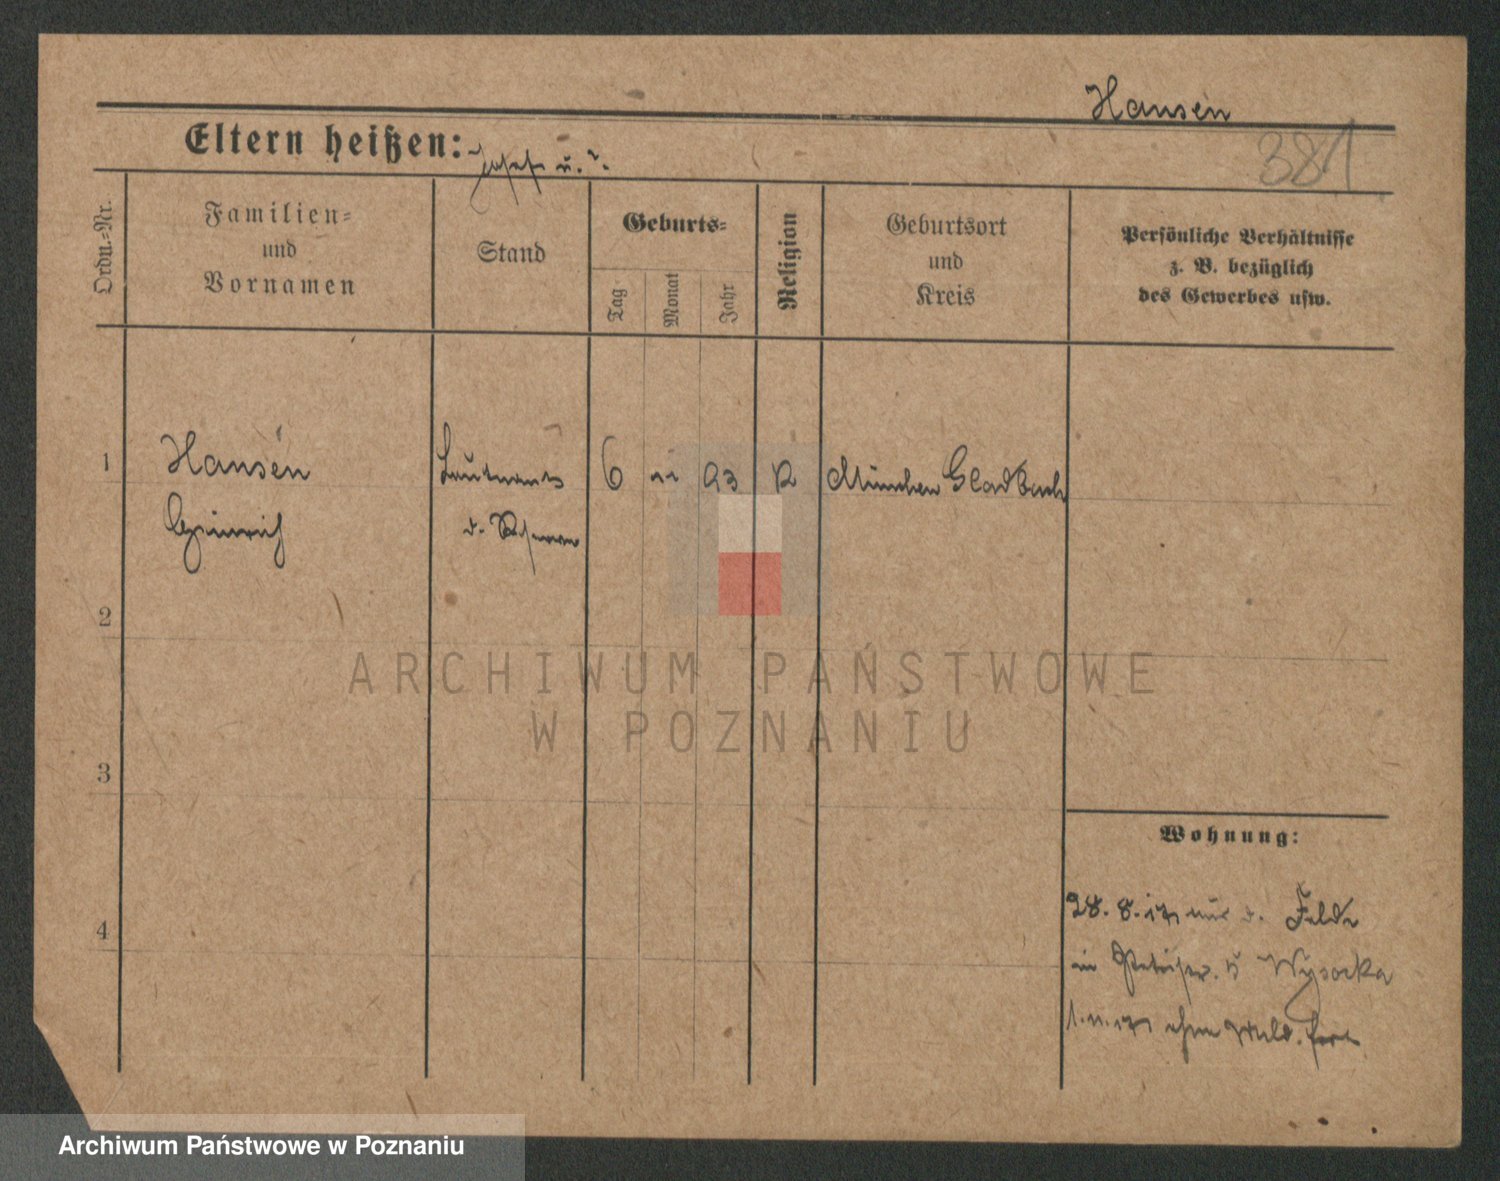 Hansen
381
Eltern heißen: Josef u. ?.
Ordn.-Nr.
Familien-
und
Vornamen
Stand
Geburts-
Tag
Monat
Jahr
Religion
Geburtsort
und
Kreis
Persönliche Verhältnisse
z. B. bezüglich
des Gewerbes usw.
1
Hansen
Heinrich
Leutnant
d.
6
93
München Gladbach
2
3
4
Wohnung:
28. 8. 17 aus d. Felde
in Wysocka
ohne Meld. fort
ARCHIWUM PAŃSTWOWE
W POZNANIU
Archiwum Państwowe w Poznaniu